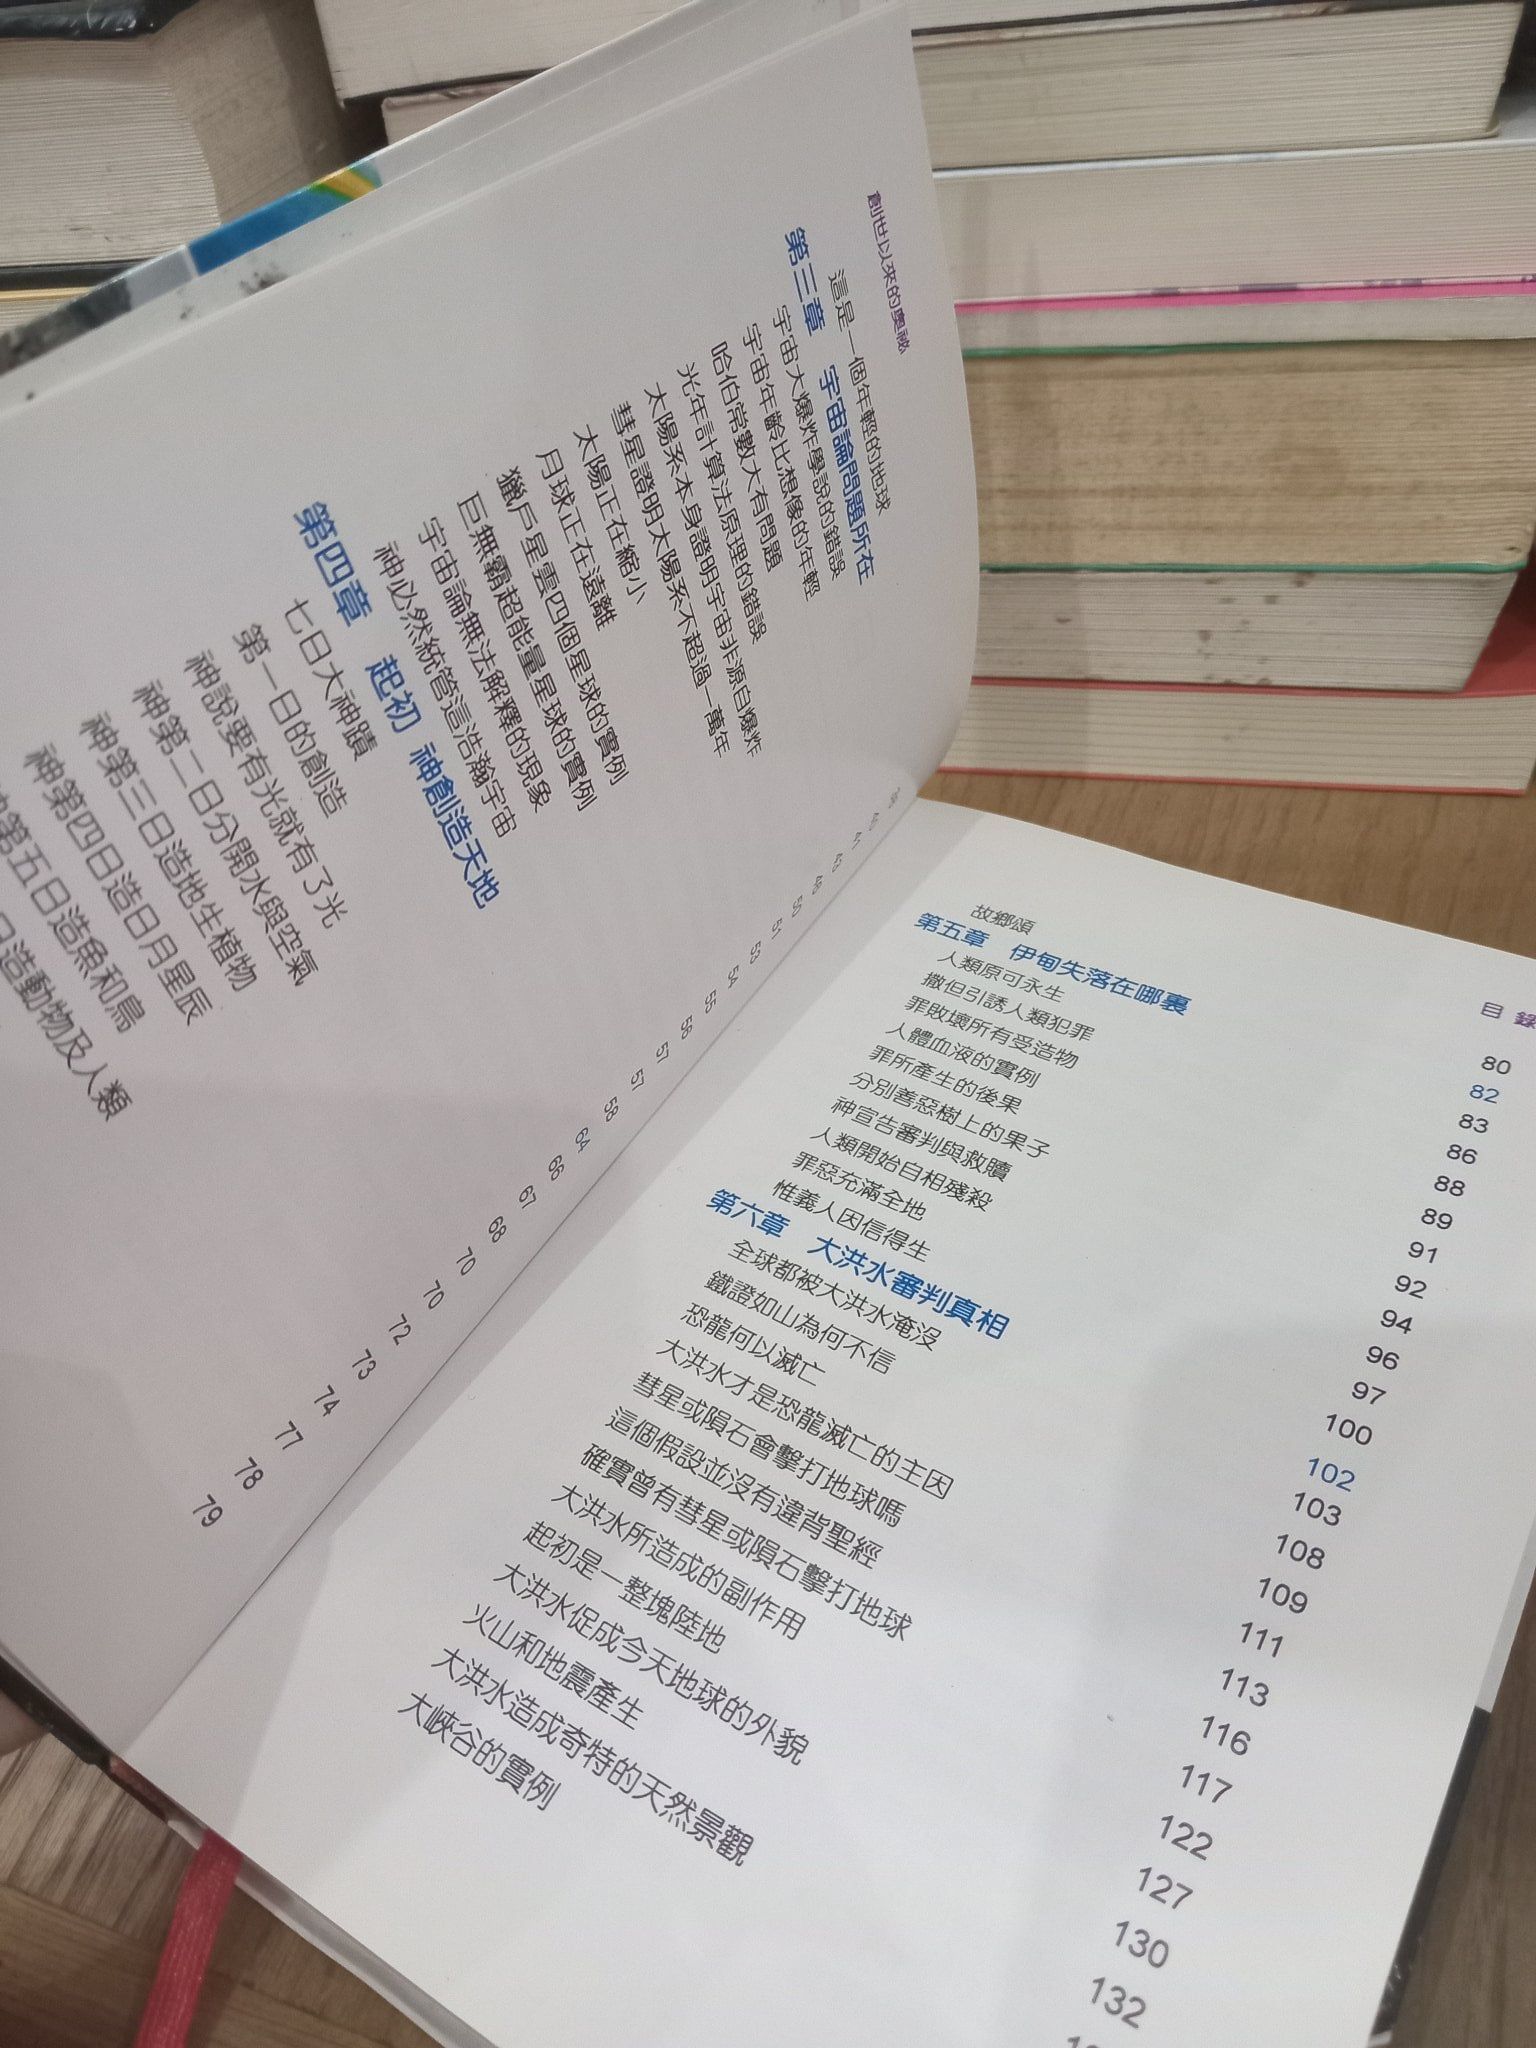 創世以來的奧祕
這是一個年輕的地球
第三章 宇宙論問題所在
宇宙大爆炸學說的錯誤
宇宙年齡比想像的年輕
哈伯常數大有問題
光年計算法原理的錯誤
太陽系本身證明宇宙非源自爆炸
彗星證明太陽系不超過一萬年
太陽正在縮小
月球正在遠離
獵戶星雲四個星球的實例
巨無霸超能量星球的實例
宇宙論無法解釋的現象
神必然統管這浩瀚宇宙
第四章 起初 神創造天地
七日大神蹟
第一日的創造
神說要有光就有了光
神第二日分開水與空氣
神第三日造地生植物
神第四日造日月星辰
神第五日造魚和鳥
日造動物及人類
40
41
43
46
50
51
53
54
55
56
57
57
58
64
66
67
68
70
70
72
73
74
77
78
79
目錄
故鄉頌 80
第五章 伊甸失落在哪裏 82
人類原可永生 83
撒但引誘人類犯罪 86
罪敗壞所有受造物 88
人體血液的實例 89
罪所產生的後果 91
分別善惡樹上的果子 92
神宣告審判與救贖 94
人類開始自相殘殺 96
罪惡充滿全地 97
惟義人因信得生 100
第六章 大洪水審判真相 102
全球都被大洪水淹沒 103
鐵證如山為何不信 108
恐龍何以滅亡 109
大洪水才是恐龍滅亡的主因 111
彗星或隕石會擊打地球嗎 113
這個假設並沒有違背聖經 116
確實曾有彗星或隕石擊打地球 117
大洪水所造成的副作用 122
起初是一整塊陸地 127
大洪水促成今天地球的外貌 130
火山和地震產生 132
大洪水造成奇特的天然景觀
大峽谷的實例